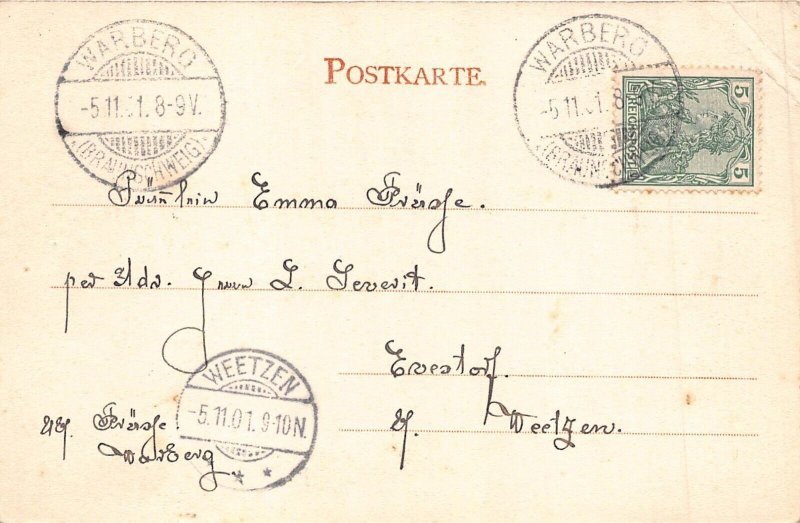 WARBERG
-5.11.01.8-9V.
(BRAUNSCHWEIG)
POSTKARTE.
WARBERG
-5.11.01.8-
(BRAUNSCHWEIG)
5 REICHSPOST 5
Fräulein Emma Fräsße.
per Adr. Herrn L. Severit.
Evestorf
b/ Weetzen.
WEETZEN
-5.11.01.9-10N.
* *
Warberg